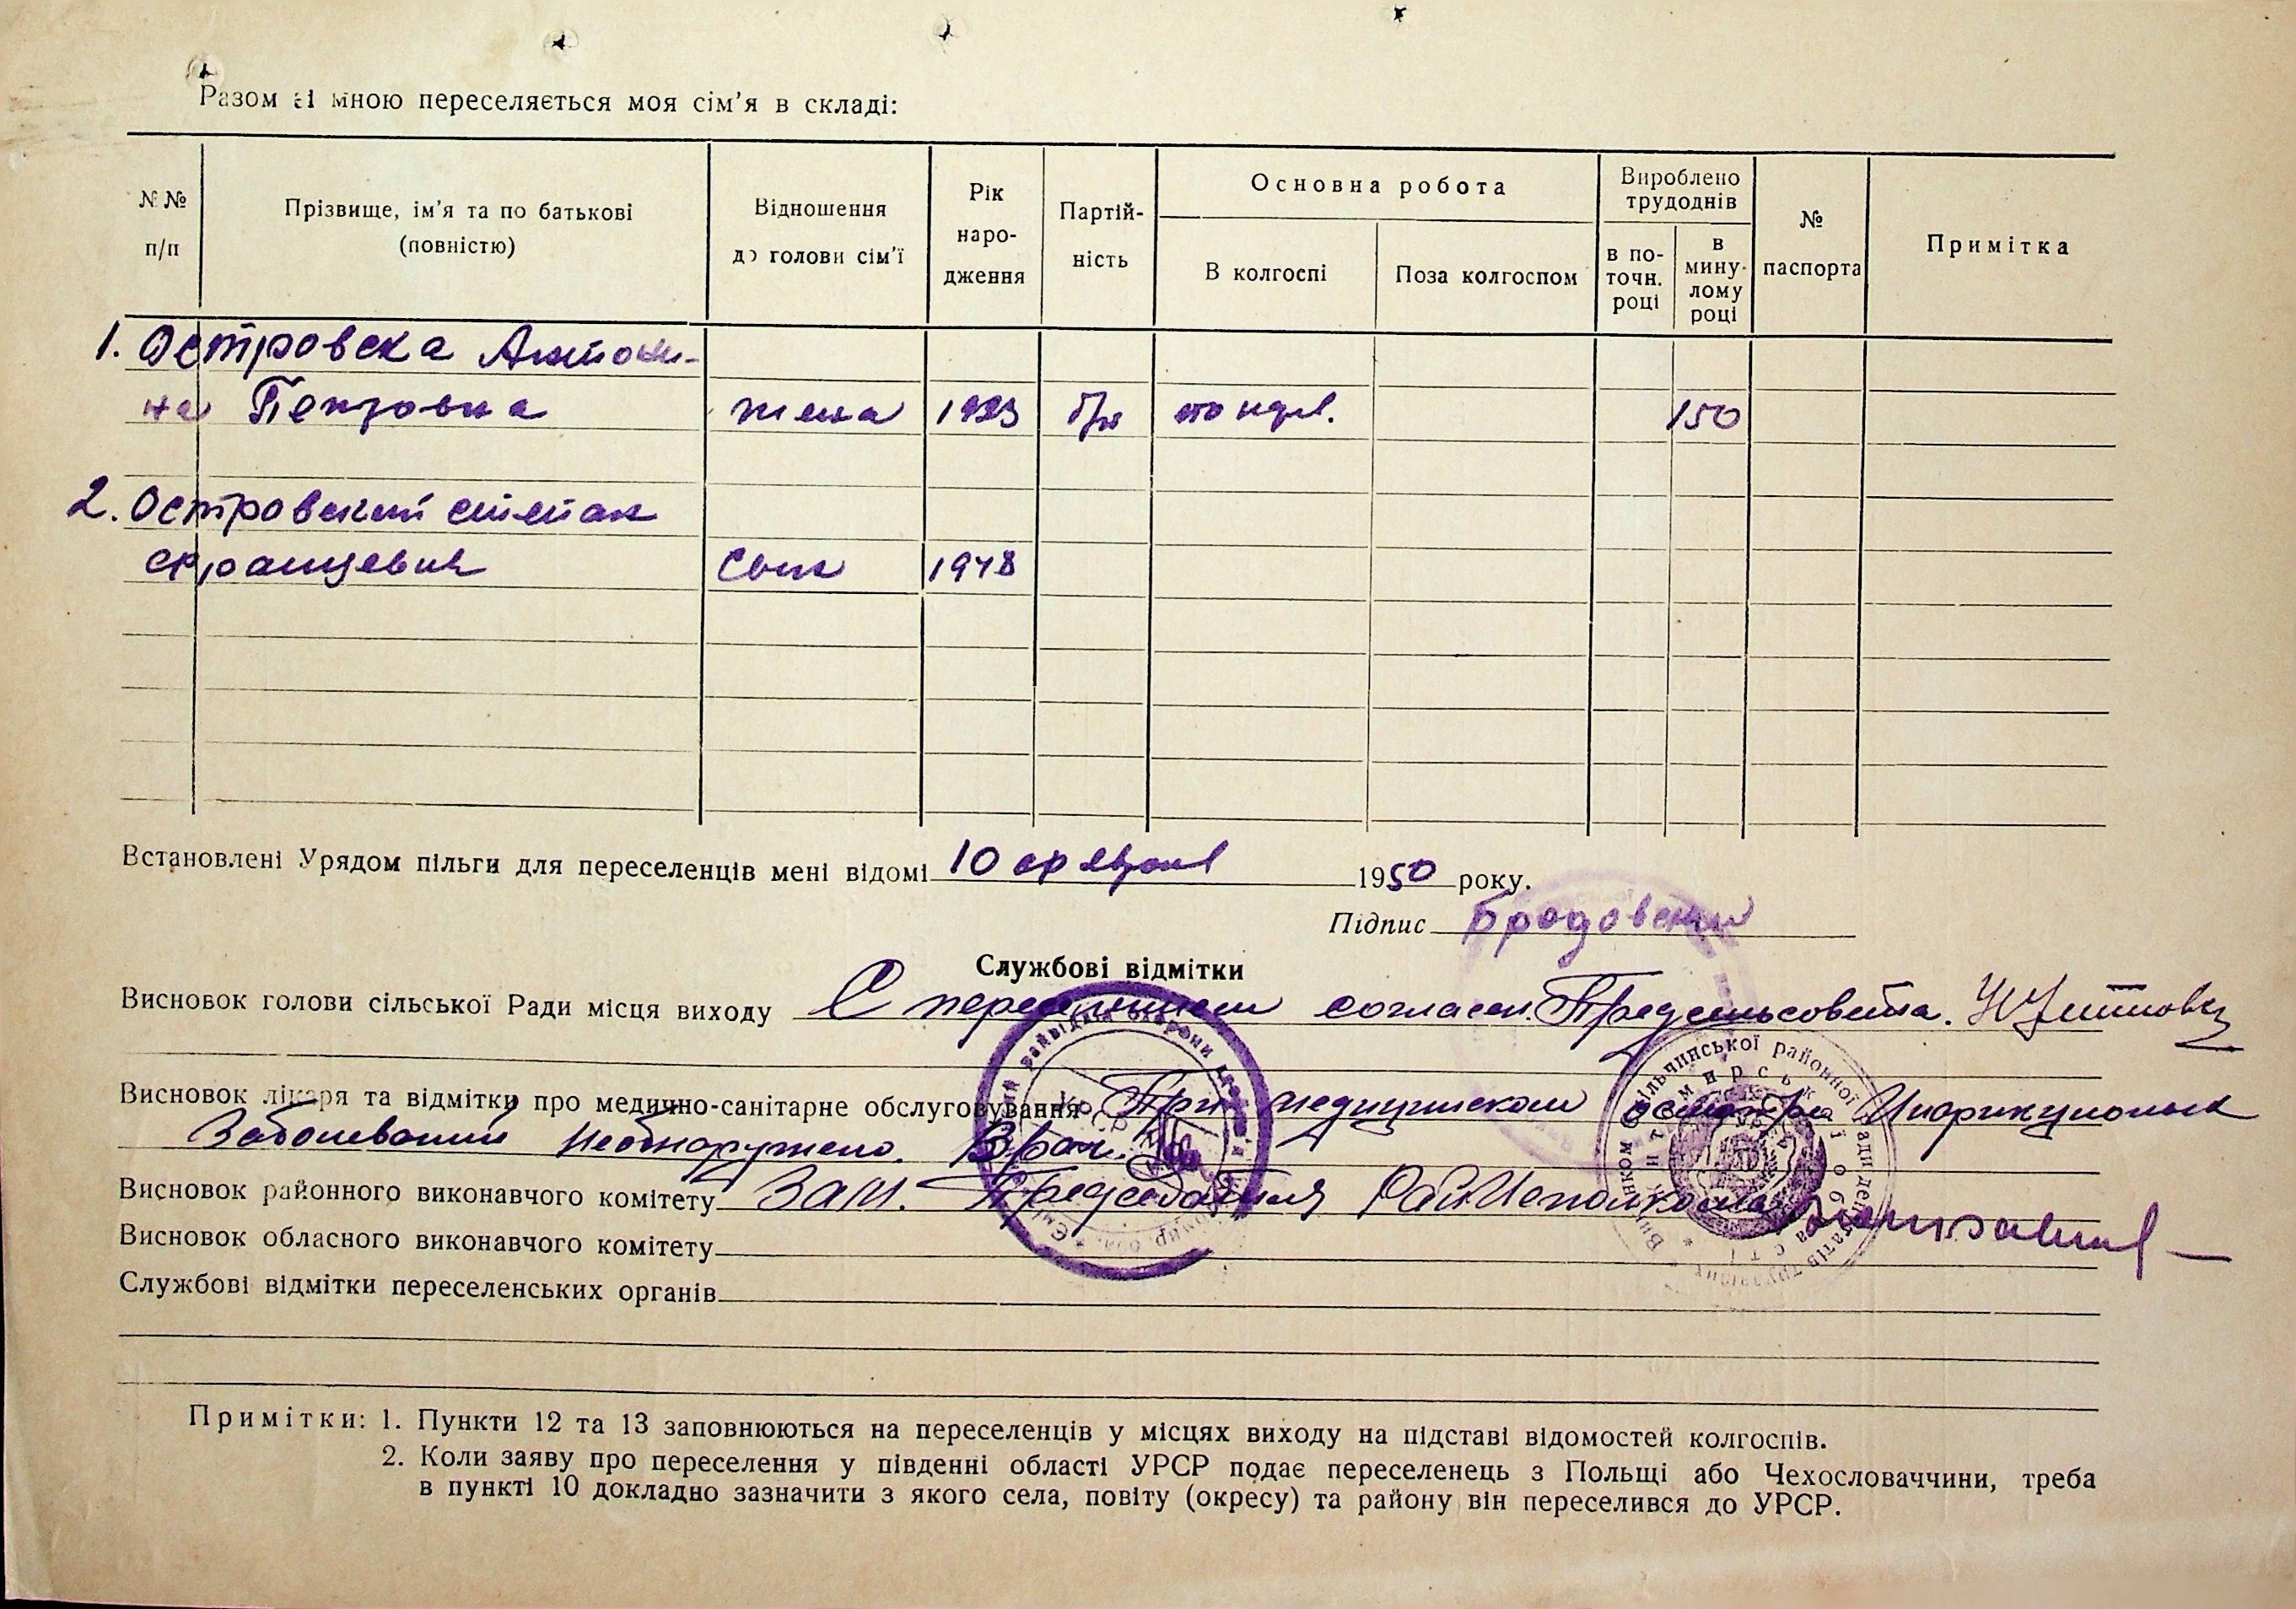 Разом зі мною переселяється моя сім'я в складі:
№№ п/п
Прізвище, ім'я та по батькові (повністю)
Відношення до голови сім'ї
Рік народження
Партійність
Основна робота
В колгоспі
Поза колгоспом
Вироблено трудоднів
в поточн. році
в минулому році
№ паспорта
Примітка
1. Островска Антони-
на Петровна жена 1923 б/п по наря. 150
2. Островский степан
францевич Сын 1948
Встановлені Урядом пільги для переселенців мені відомі 10 февраля 1950 року.
Підпис Бродовский
Службові відмітки
Висновок голови сільської Ради місця виходу С переселением согласен. Предсельсовета.
Висновок лікаря та відмітки про медично-санітарне обслуговування При медицинском осмотре
Заболеваний необнаружено. Врач.
Висновок районного виконавчого комітету Зам. Председателя РайИсполкома
Висновок обласного виконавчого комітету
Службові відмітки переселенських органів
Примітки: 1. Пункти 12 та 13 заповнюються на переселенців у місцях виходу на підставі відомостей колгоспів.
2. Коли заяву про переселення у південні області УРСР подає переселенець з Польщі або Чехословаччини, треба
в пункті 10 докладно зазначити з якого села, повіту (окресу) та району він переселився до УРСР.